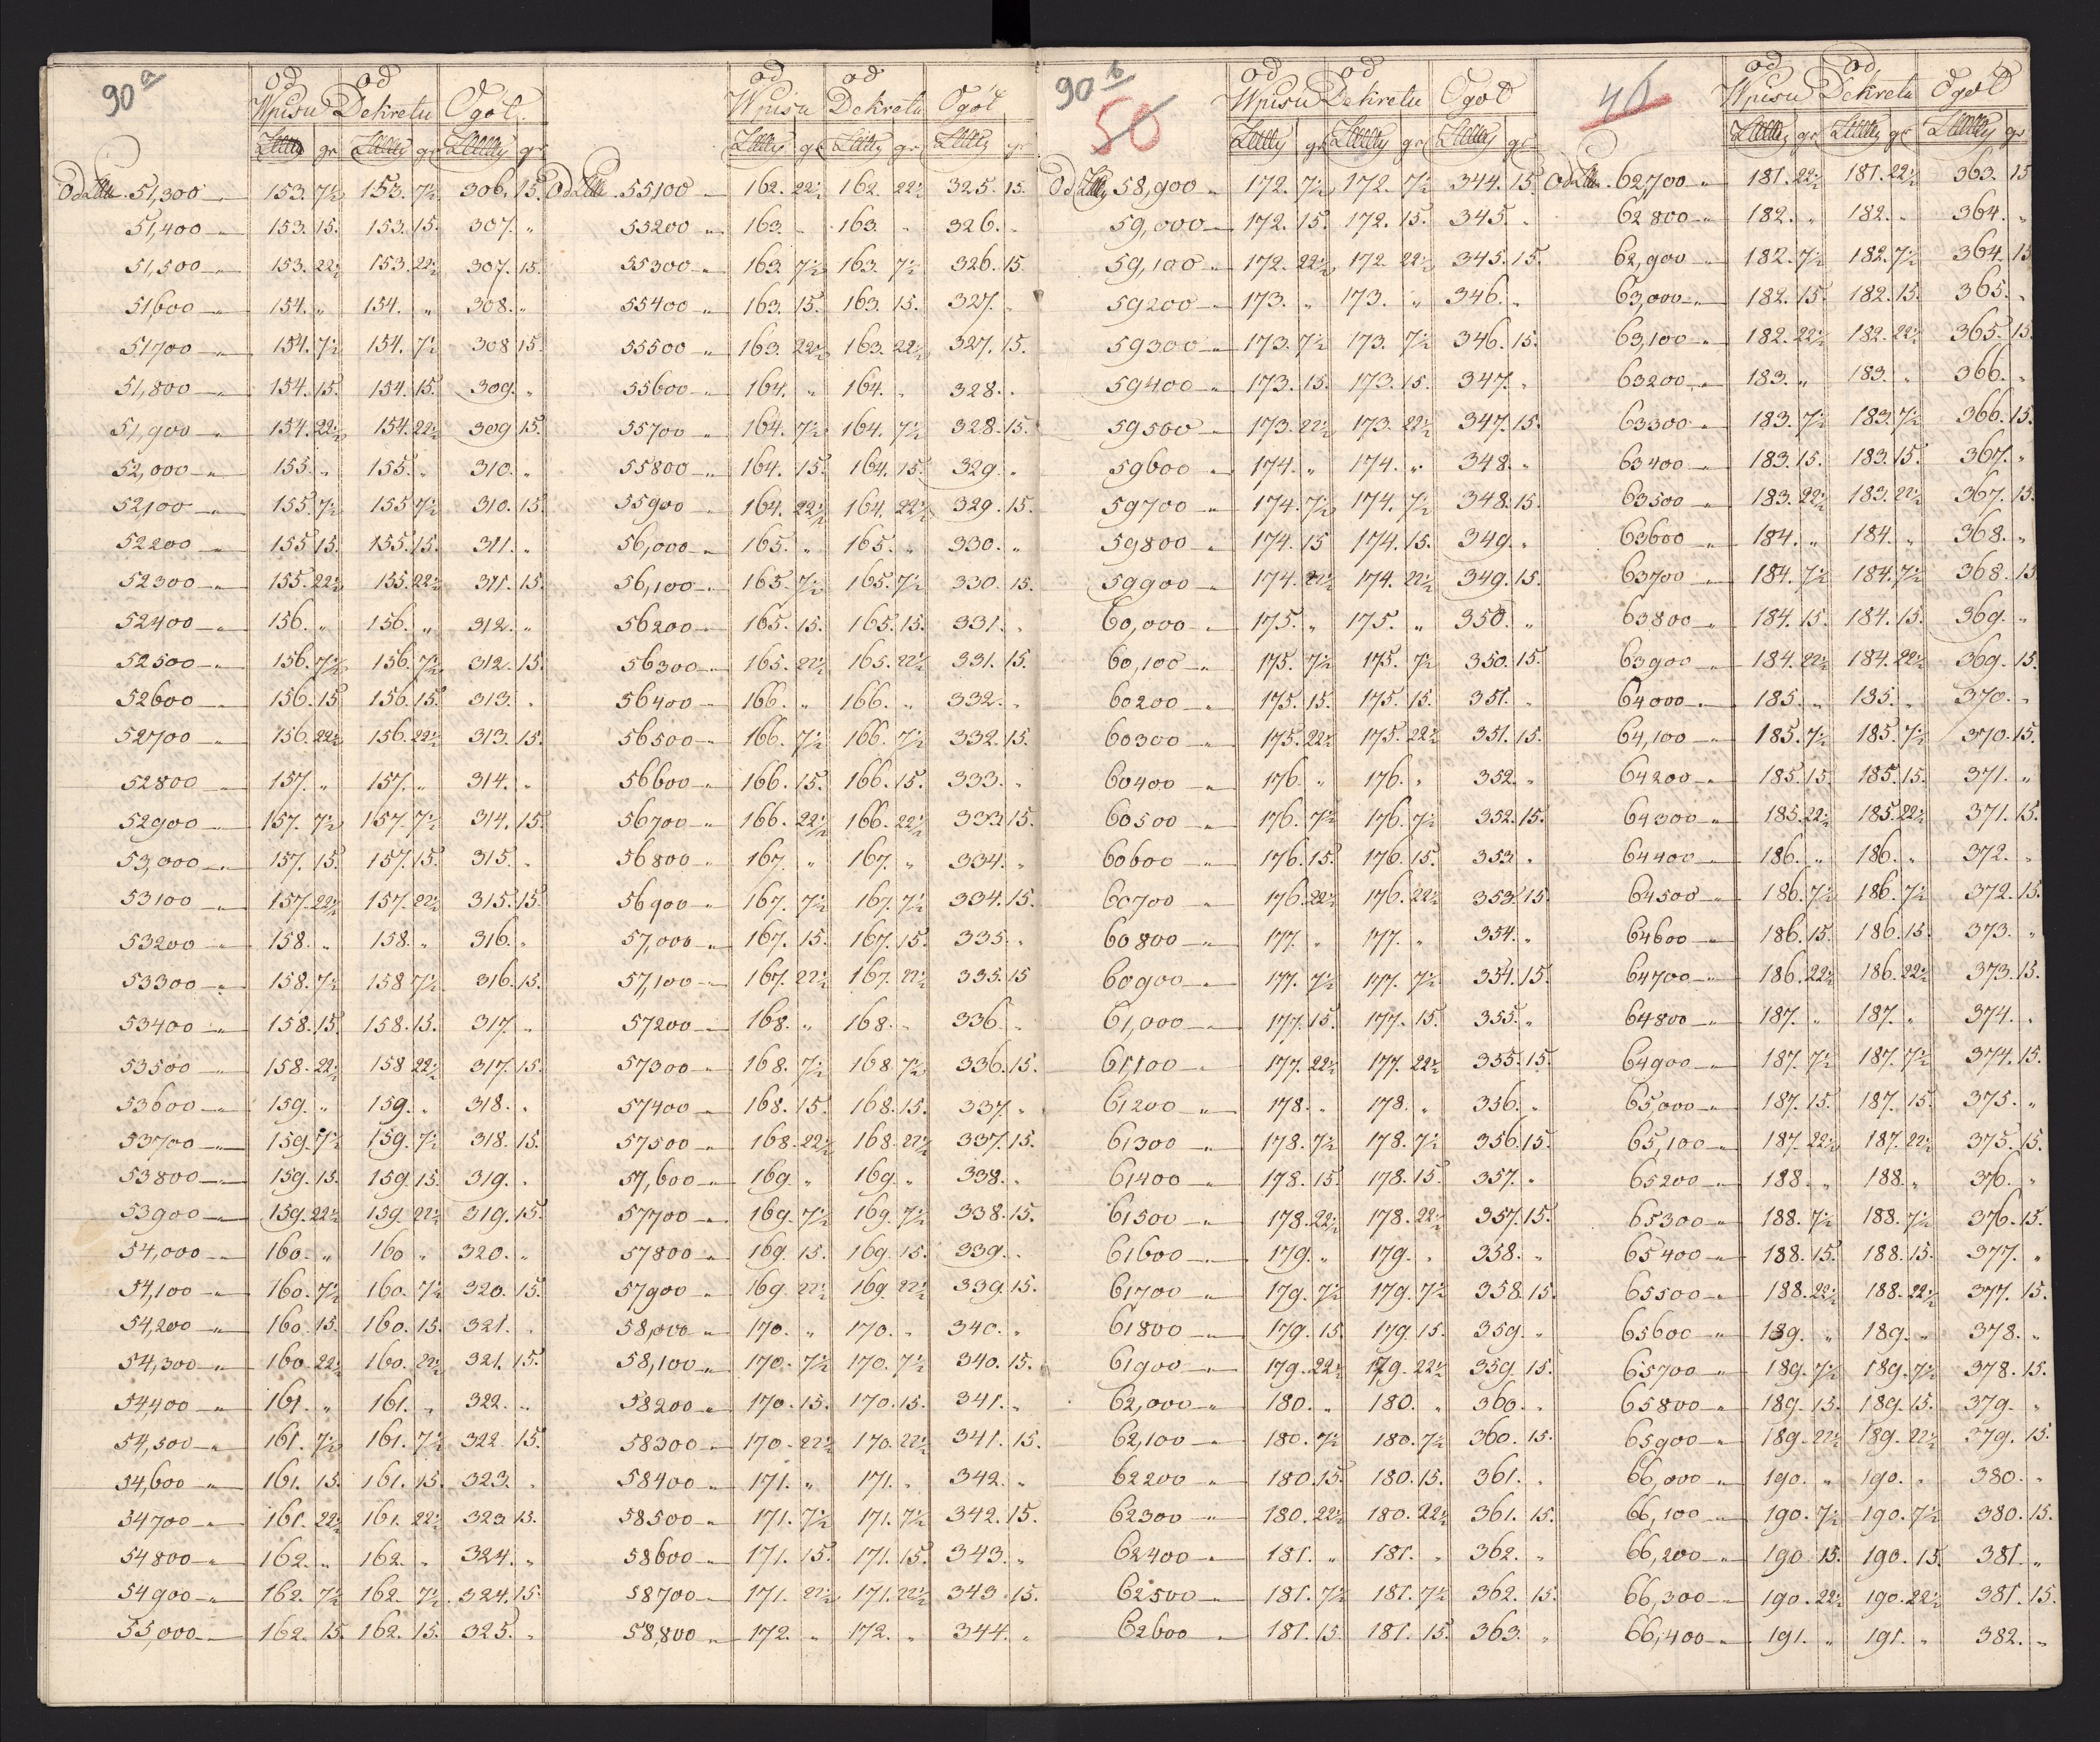 90 a
od od
Wpisu Dekretu Ogół.
gr gr gr
Od 51,300 — „ 153. 7½ 153. 7½ 306. 15.
51,400 — „ 153. 15. 153. 15. 307. „
51,500 — „ 153. 22½ 153. 22½ 307. 15.
51,600 — „ 154. „ 154. „ 308. „
51,700 — „ 154. 7½ 154. 7½ 308 15.
51,800 — „ 154. 15. 154. 15. 309. „
51,900 — „ 154. 22½ 154. 22½ 309 15.
52,000 — „ 155. „ 155. „ 310. „
52,100 — „ 155 7½ 155 7½ 310. 15.
52200 — „ 155 15. 155. 15. 311. „
52300 — „ 155. 22½ 155. 22½ 311. 15.
52400 — „ 156. „ 156. „ 312. „
52500 — „ 156. 7½ 156. 7½ 312. 15.
52600 — „ 156. 15 156. 15. 313. „
52700 — „ 156. 22½ 156. 22½ 313. 15.
52800 — „ 157. „ 157. „ 314. „
52900 — „ 157. 7½ 157. 7½ 314. 15.
53,000 — „ 157. 15. 157. 15. 315. „
53100 — „ 157. 22½ 157. 22½ 315. 15.
53200 — „ 158. „ 158. „ 316. „
53300 — „ 158. 7½ 158 7½ 316. 15.
53400 — „ 158. 15. 158. 15. 317. „
53500 — „ 158. 22½ 158 22½ 317. 15.
53600 — „ 159. „ 159. „ 318. „
53700 — „ 159. 7½ 159. 7½ 318. 15.
53800 — „ 159. 15. 159. 15. 319. „
53900 — „ 159. 22½ 159. 22½ 319. 15.
54,000 — „ 160. „ 160 „ 320. „
54,100 — „ 160. 7½ 160. 7½ 320. 15.
54,200 — „ 160. 15. 160. 15. 321. „
54,300 — „ 160. 22½ 160. 22½ 321. 15.
54,400 — „ 161. „ 161. „ 322. „
54,500 — „ 161. 7½ 161. 7½ 322. 15.
54,600 — „ 161. 15. 161. 15. 323. „
54700 — „ 161. 22½ 161. 22½ 323 15.
54800 — „ 162. „ 162. „ 324. „
54900 — „ 162. 7½ 162. 7½ 324. 15.
55,000 — „ 162. 15. 162. 15. 325. „
od od
Wpisu Dekretu Ogół
gr gr gr
Od 55,100 — „ 162. 22½ 162. 22½ 325. 15.
55200 — „ 163. „ 163. „ 326. „
55300 — „ 163. 7½ 163. 7½ 326. 15.
55400 — „ 163. 15. 163. 15. 327. „
55500 — „ 163. 22½ 163. 22½ 327. 15.
55600 — „ 164. „ 164. „ 328. „
55700 — „ 164. 7½ 164. 7½ 328. 15.
55800 — „ 164. 15. 164. 15. 329. „
55900 — „ 164. 22½ 164. 22½ 329. 15.
56,000 — „ 165. „ 165. „ 330. „
56,100 — „ 165. 7½ 165. 7½ 330. 15.
56200 — „ 165. 15. 165. 15. 331. „
56300 — „ 165. 22½ 165. 22½ 331. 15.
56400 — „ 166. „ 166. „ 332. „
56500 — „ 166. 7½ 166. 7½ 332. 15.
56600 — „ 166. 15. 166. 15. 333. „
56700 — „ 166. 22½ 166. 22½ 333 15.
56800 — „ 167. „ 167. „ 334. „
56900 — „ 167. 7½ 167. 7½ 334. 15.
57,000 — „ 167. 15. 167. 15. 335. „
57,100 — „ 167. 22½ 167. 22½ 335. 15
57200 — „ 168. „ 168. „ 336. „
57300 — „ 168. 7½ 168 7½ 336. 15.
57400 — „ 168. 15. 168. 15. 337. „
57500 — „ 168. 22½ 168. 22½ 337. 15.
57,600 — „ 169. „ 169. „ 338. „
57700 — „ 169. 7½ 169. 7½ 338. 15.
57800 — „ 169. 15. 169. 15. 339. „
57900 — „ 169. 22½ 169. 22½ 339. 15.
58,000 — „ 170. „ 170. „ 340. „
58,100 — „ 170. 7½ 170. 7½ 340. 15.
58200 — „ 170. 15. 170. 15. 341. „
58300 — „ 170. 22½ 170. 22½ 341. 15.
58400 — „ 171. „ 171. „ 342. „
58500 — „ 171. 7½ 171. 7½ 342. 15.
58600 — „ 171. 15. 171. 15. 343. „
58700 — „ 171. 22½ 171. 22½ 343. 15.
58,800 — „ 172. „ 172. „ 344. „
90 b
50
od od
Wpisu Dekretu Ogół
gr gr gr
Od 58,900 — „ 172. 7½ 172. 7½ 344. 15.
59,000 — „ 172. 15. 172. 15. 345. „
59,100 — „ 172. 22½ 172. 22½ 345. 15.
59200 — „ 173. „ 173. „ 346. „
59300 — „ 173. 7½ 173. 7½ 346. 15.
59400 — „ 173. 15. 173. 15. 347. „
59500 — „ 173. 22½ 173. 22½ 347. 15.
59600 — „ 174. „ 174. „ 348. „
59700 — „ 174. 7½ 174. 7½ 348. 15.
59800 — „ 174. 15 174. 15. 349. „
59900 — „ 174. 22½ 174. 22½ 349. 15.
60,000 — „ 175. „ 175. „ 350. „
60,100 — „ 175. 7½ 175. 7½ 350. 15.
60200 — „ 175. 15. 175. 15. 351. „
60300 — „ 175. 22½ 175. 22½ 351. 15.
60400 — „ 176. „ 176. „ 352. „
60500 — „ 176. 7½ 176. 7½ 352. 15.
60600 — „ 176. 15. 176. 15. 353 „
60700 — „ 176. 22½ 176. 22½ 353. 15.
60800 — „ 177. „ 177. „ 354. „
60900 — „ 177. 7½ 177. 7½ 354. 15.
61,000 — „ 177. 15. 177. 15. 355. „
61,100 — „ 177. 22½ 177. 22½ 355. 15.
61200 — „ 178. „ 178. „ 356. „
61300 — „ 178. 7½ 178. 7½ 356. 15.
61400 — „ 178. 15. 178. 15. 357. „
61500 — „ 178. 22½ 178. 22½ 357. 15.
61600 — „ 179. „ 179. „ 358. „
61700 — „ 179. 7½ 179. 7½ 358. 15.
61800 — „ 179. 15. 179. 15. 359. „
61900 — „ 179. 22½ 179. 22½ 359. 15.
62,000 — „ 180. „ 180. „ 360. „
62,100 — „ 180. 7½ 180. 7½ 360. 15.
62200 — „ 180. 15. 180. 15. 361. „
62300 — „ 180. 22½ 180. 22½ 361. 15.
62400 — „ 181. „ 181. „ 362. „
62500 — „ 181. 7½ 181. 7½ 362. 15.
62600 — „ 181. 15. 181. 15. 363. „
od od
Wpisu Dekretu Ogół
gr gr gr
Od 62,700 — „ 181. 22½ 181. 22½ 363. 15
62800 — „ 182. „ 182. „ 364. „
62,900 — „ 182. 7½ 182. 7½ 364. 15
63,000 — „ 182. 15. 182. 15. 365. „
63,100 — „ 182. 22½ 182. 22½ 365. 15.
63200 — „ 183. „ 183. „ 366. „
63300 — „ 183. 7½ 183. 7½ 366. 15.
63400 — „ 183. 15. 183. 15. 367. „
63500 — „ 183. 22½ 183. 22½ 367. 15.
63600 — „ 184. „ 184. „ 368. „
63700 — „ 184. 7½ 184. 7½ 368. 15
63800 — „ 184. 15. 184. 15. 369. „
63900 — „ 184. 22½ 184. 22½ 369. 15.
64000 — „ 185. „ 185. „ 370. „
64,100 — „ 185. 7½ 185. 7½ 370. 15.
64200 — „ 185. 15. 185. 15. 371. „
64300 — „ 185. 22½ 185. 22½ 371. 15.
64400 — „ 186. „ 186. „ 372. „
64500 — „ 186. 7½ 186. 7½ 372. 15.
64600 — „ 186. 15. 186. 15. 373. „
64700 — „ 186. 22½ 186. 22½ 373. 15.
64800 — „ 187. „ 187. „ 374. „
64900 — „ 187. 7½ 187. 7½ 374. 15.
65,000 — „ 187. 15. 187. 15. 375. „
65,100 — „ 187. 22½ 187. 22½ 375. 15.
65200 — „ 188. „ 188. „ 376. „
65300 — „ 188. 7½ 188. 7½ 376. 15.
65400 — „ 188. 15. 188. 15. 377. „
65500 — „ 188. 22½ 188. 22½ 377. 15.
65600 — „ 189. „ 189. „ 378. „
65700 — „ 189. 7½ 189. 7½ 378. 15.
65800 — „ 189. 15. 189. 15. 379. „
65900 — „ 189. 22½ 189. 22½ 379. 15.
66,000 — „ 190. „ 190. „ 380. „
66,100 — „ 190. 7½ 190. 7½ 380. 15.
66,200 — „ 190. 15. 190. 15. 381. „
66,300 — „ 190. 22½ 190. 22½ 381. 15.
66,400 — „ 191. „ 191. „ 382. „